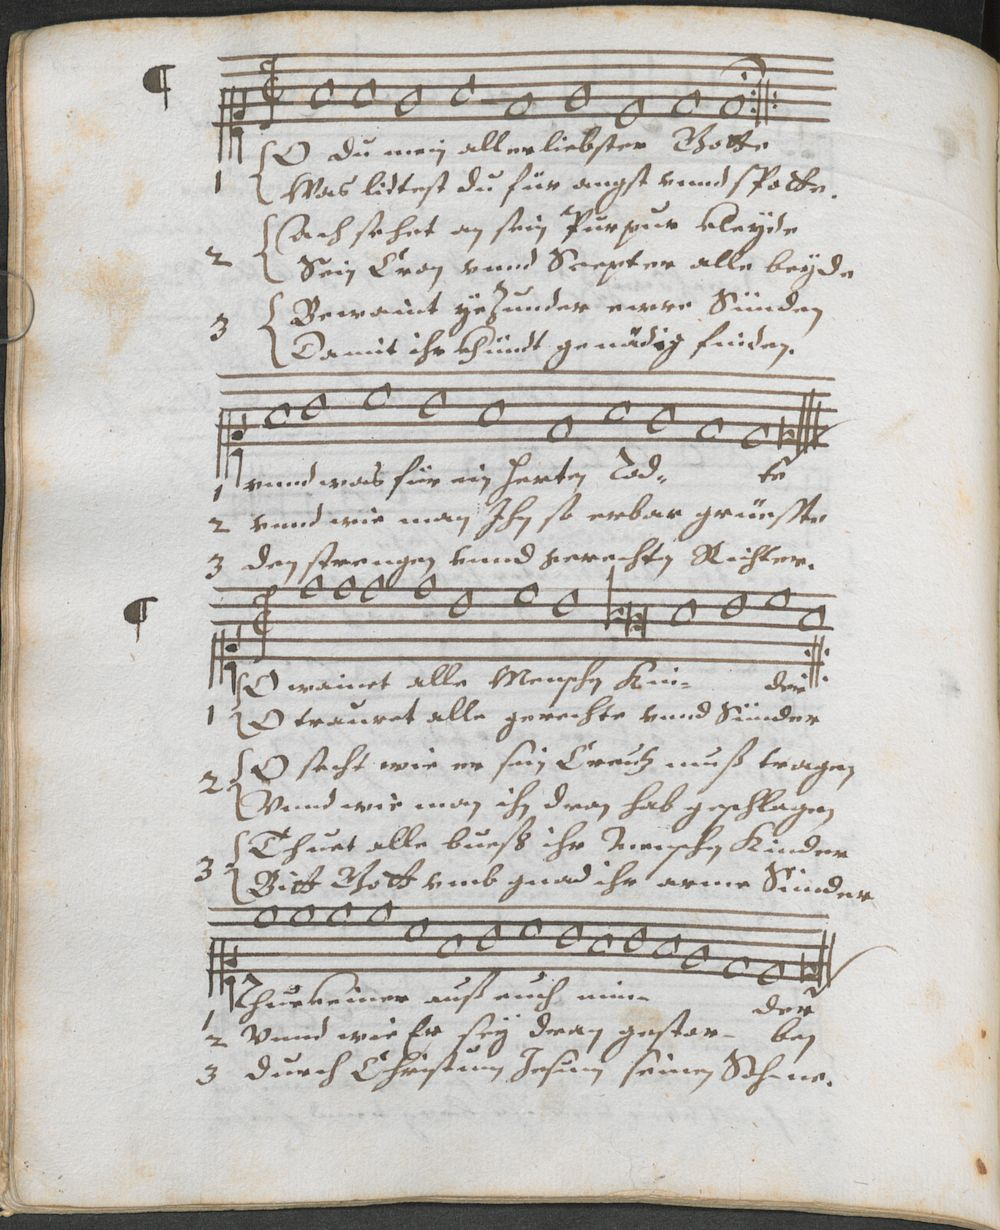 ¶
1 O du mein allerliebster Gotte
Was lidtest du für angst vnnd spotte.
2 Ach sehet an sein Purpur kleyde
Sein Cron vnnd Scepter alle beyde
3 Bewaint yezunder ewre Sünden
Damit ihr khündt genädig finden.
1 vnnd was für ein herten Tod- te
2 vnnd wie man Ihn so erbar grüesste
3 den strengen vnnd gerechten Richter.
¶
1 O wainet alle Menschen Kin- der
O trauret alle gerechte vnnd Sünder
2 O secht wie er sein Creutz muß tragen
Vnnd wie man ihn dran hab geschlagen
3 Thuet alle buess ihr Menschen Kinder
Bitt Gott vmb gnad ihr arme Sünder
1 keiner auß euch min- der
2 Vnnd wie Er sey dran gestor- ben
3 durch Christum Jesum seinen Soh- ne.